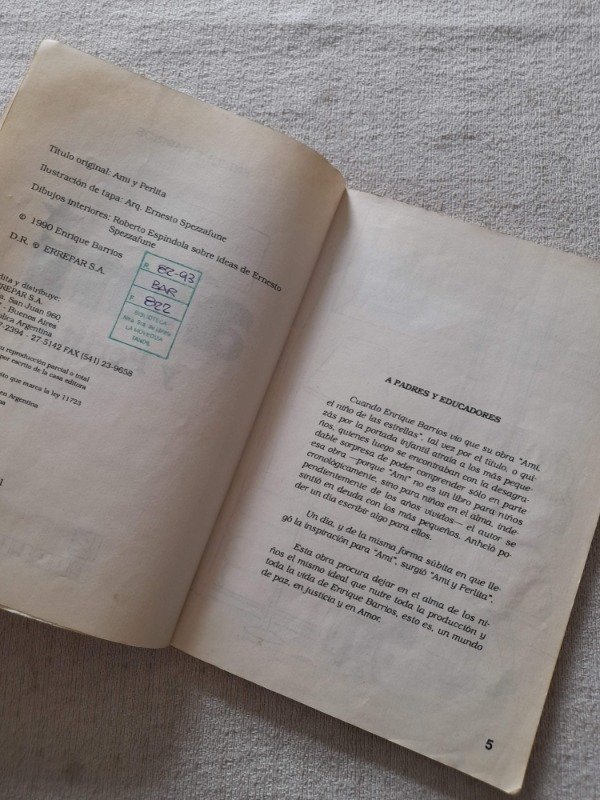 Título original: Ami y Perlita
Ilustración de tapa: Arq. Ernesto Spezzafune
Dibujos interiores: Roberto Espíndola sobre ideas de Ernesto
Spezzafune
© 1990 Enrique Barrios
D.R. © ERREPAR S.A.
R. 82-93
BAR
F. 822
BIBLIOTECA
LA MOVEDIZA
TANDIL
dita y distribuye:
RREPAR S.A.
a. San Juan 960
- Buenos Aires
blica Argentina
7-2394 - 27-5142 FAX (541) 23-9658
su reproducción parcial o total
por escrito de la casa editora
ito que marca la ley 11723
en Argentina
na
1
A PADRES Y EDUCADORES
Cuando Enrique Barrios vio que su obra "Ami,
el niño de las estrellas", tal vez por el título, o qui-
zás por la portada infantil atraía a los más peque-
ños, quienes luego se encontraban con la desagra-
dable sorpresa de poder comprender sólo en parte
esa obra —porque "Ami" no es un libro para niños
cronológicamente, sino para niños en el alma, inde-
pendientemente de los años vividos— el autor se
sintió en deuda con los más pequeños. Anheló po-
der un día escribir algo para ellos.
Un día, y de la misma forma súbita en que lle-
gó la inspiración para "Ami", surgió "Ami y Perlita".
Esta obra procura dejar en el alma de los ni-
ños el mismo ideal que nutre toda la producción y
toda la vida de Enrique Barrios, esto es, un mundo
de paz, en justicia y en Amor.
5